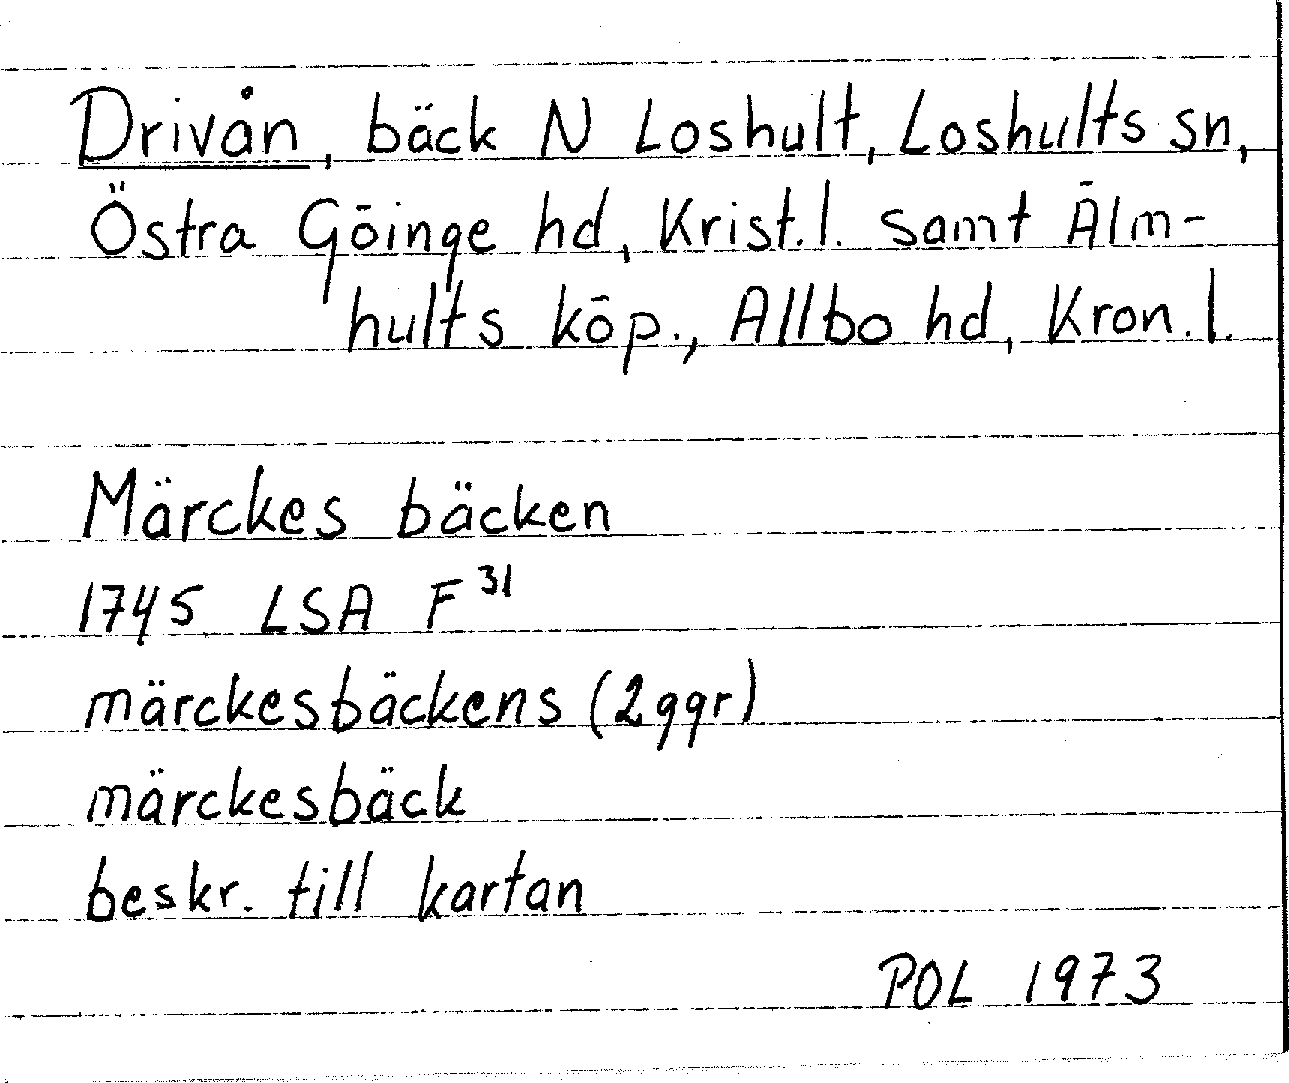 Drivån, bäck N Loshult, Loshults sn,
Östra Göinge hd, Krist.l. samt Älm-
hults köp., Allbo hd, Kron.l.
Märckes bäcken
1745 LSA F³¹
märckesbäckens (2ggr)
märckesbäck
beskr. till kartan
POL 1973